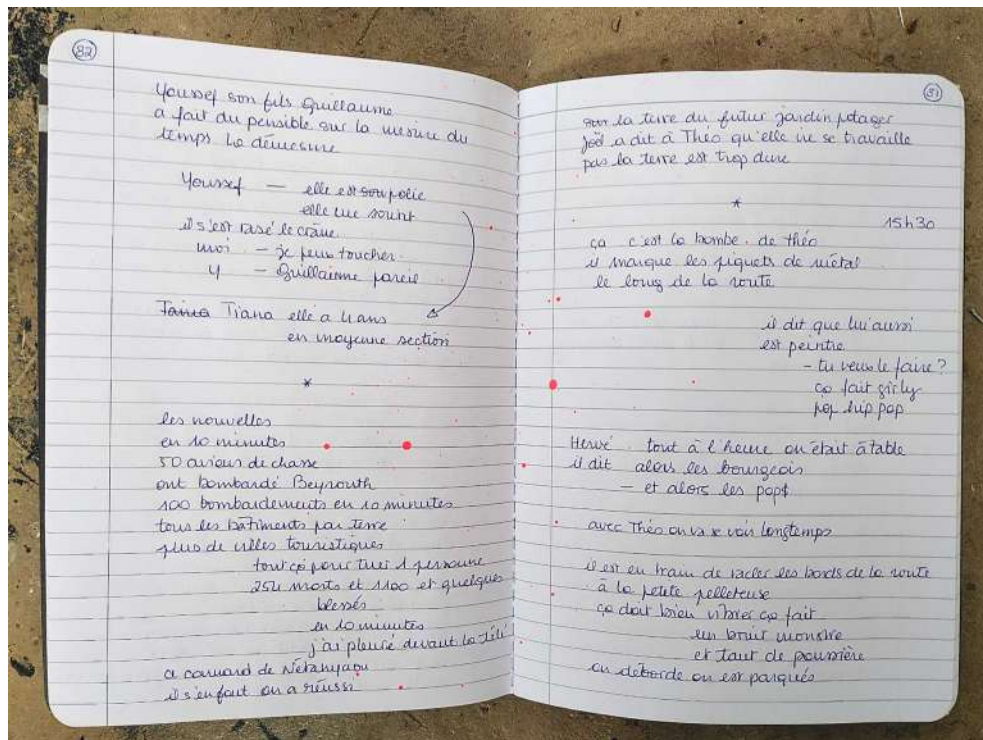 82
Youssef son fils Guillaume
a fait du pensible sur la mesure du
temps la démesure
Youssef — elle est soupolie
elle me sourit
il s'est rasé le crâne
moi – je peux toucher
Y – Guillaume pareil
Taina Tiana elle a 4 ans
en moyenne section
*
les nouvelles
en 10 minutes
50 avions de chasse
ont bombardé Beyrouth
100 bombardements en 10 minutes
tous les bâtiments par terre
plus de villes touristiques
tout ça pour tuer 1 personne
254 morts et 1100 et quelques
blessés
en 10 minutes
j'ai pleuré devant la télé
ce connard de Netanyaou
il s'en fout on a réussi
sur la terre du futur jardin potager
joël a dit à Théo qu'elle ne se travaille
pas la terre est trop dure
*
15h30
ça c'est la bombe de théo
il marque les piquets de métal
le long de la route
il dit que lui aussi
est peintre
– tu veux le faire ?
ça fait girly
pop hip pop
Hervé tout à l'heure on était à table
il dit alors les bourgeois
– et alors les pops
avec Théo on va se voir longtemps
il est en train de racler les bords de la route
à la petite pelleteuse
ça doit bien vibrer ça fait
un bruit monstre
et tant de poussière
on déborde on est parqués